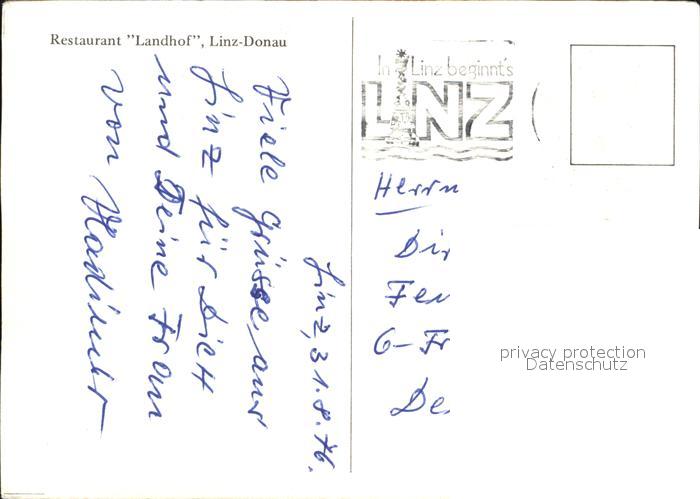 Restaurant "Landhof", Linz-Donau
Linz, 31.8.76.
Viele Grüsse, aus
Linz für Dich
und Deine Frau
von
In Linz beginnt's
LINZ
Herrn
Dir
Fer
6-Fr
De
privacy protection
Datenschutz